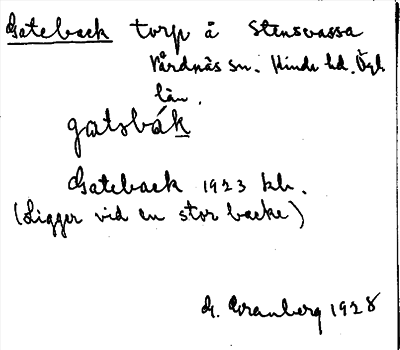 Gateback torp å Stensvassa
Vårdnäs sn. Kinds hd. Ögl.
län.
gatsbák
Gateback 1923 kb.
(Ligger vid en stor backe)
G. Granberg 1928